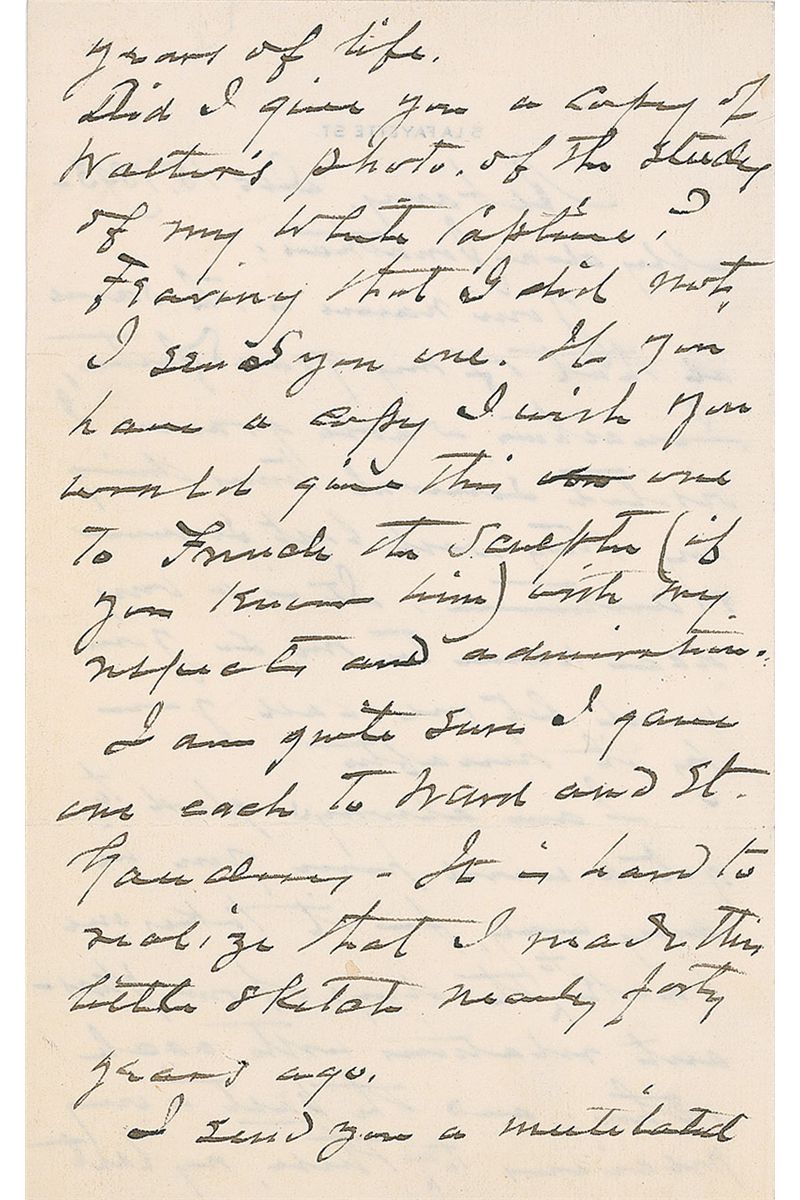 years of life.
Did I give you a copy of
Walter's photo. of the study
of my White Captive?
Fearing that I did not,
I send you one. If you
have a copy I wish you
would give this one
to French the Sculptor (if
you know him) with my
respects and admiration.
I am quite sure I gave
one each to Ward and St.
Gaudens - It is hard to
realize that I made this
little sketch nearly forty
years ago.
I send you a mutilated
5 LAFAYETTE ST.